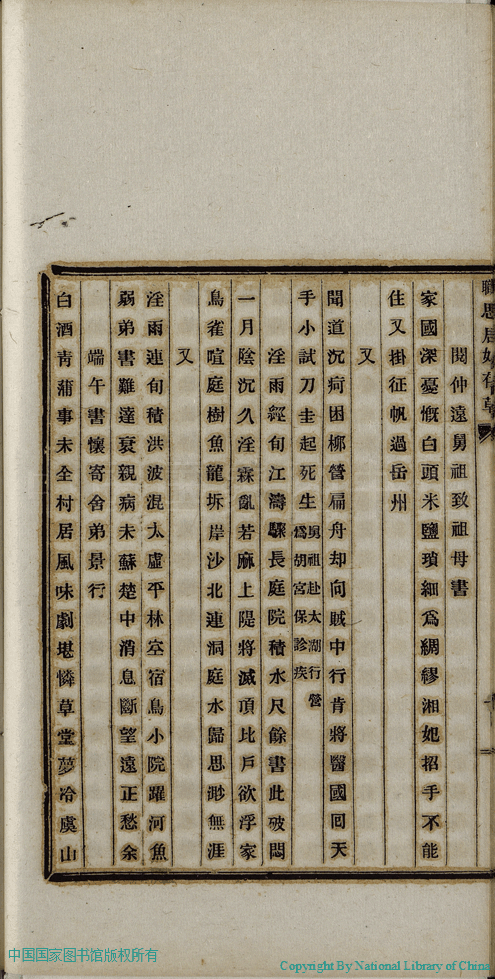 閱仲遠舅祖致祖母書
家國深憂慨白頭米鹽瑣細爲綢繆湘妃招手不能
住又掛征帆過岳州
又
聞道沉疴困柳營扁舟却向賊中行肯將醫國囘天
手小試刀圭起死生舅祖赴太湖行營爲胡宮保診疾
淫雨經旬江濤驟長庭院積水尺餘書此破悶
一月陰沉久淫霖亂若麻上隄將滅頂比戶欲浮家
鳥雀喧庭樹魚龍坼岸沙北連洞庭水歸思渺無涯
又
淫雨連旬積洪波混太虛平林室宿鳥小院躍河魚
弱弟書難達衰親病未蘇楚中消息斷望遠正愁余
端午書懷寄舍弟景行
白酒靑蒲事未全村居風味劇堪憐草堂夢冷虞山
中国国家图书馆版权所有
Copyright By National Library of China